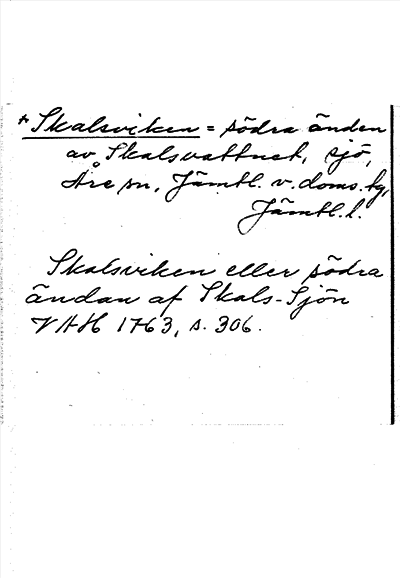 * Skalsviken = södra änden
av Skalsvattnet, sjö,
Åre sn, Jämtl. v. doms. hg,
Jämtl. l.
Skalsviken eller södra
ändan af Skals-Sjön
VAH 1763, s. 306.